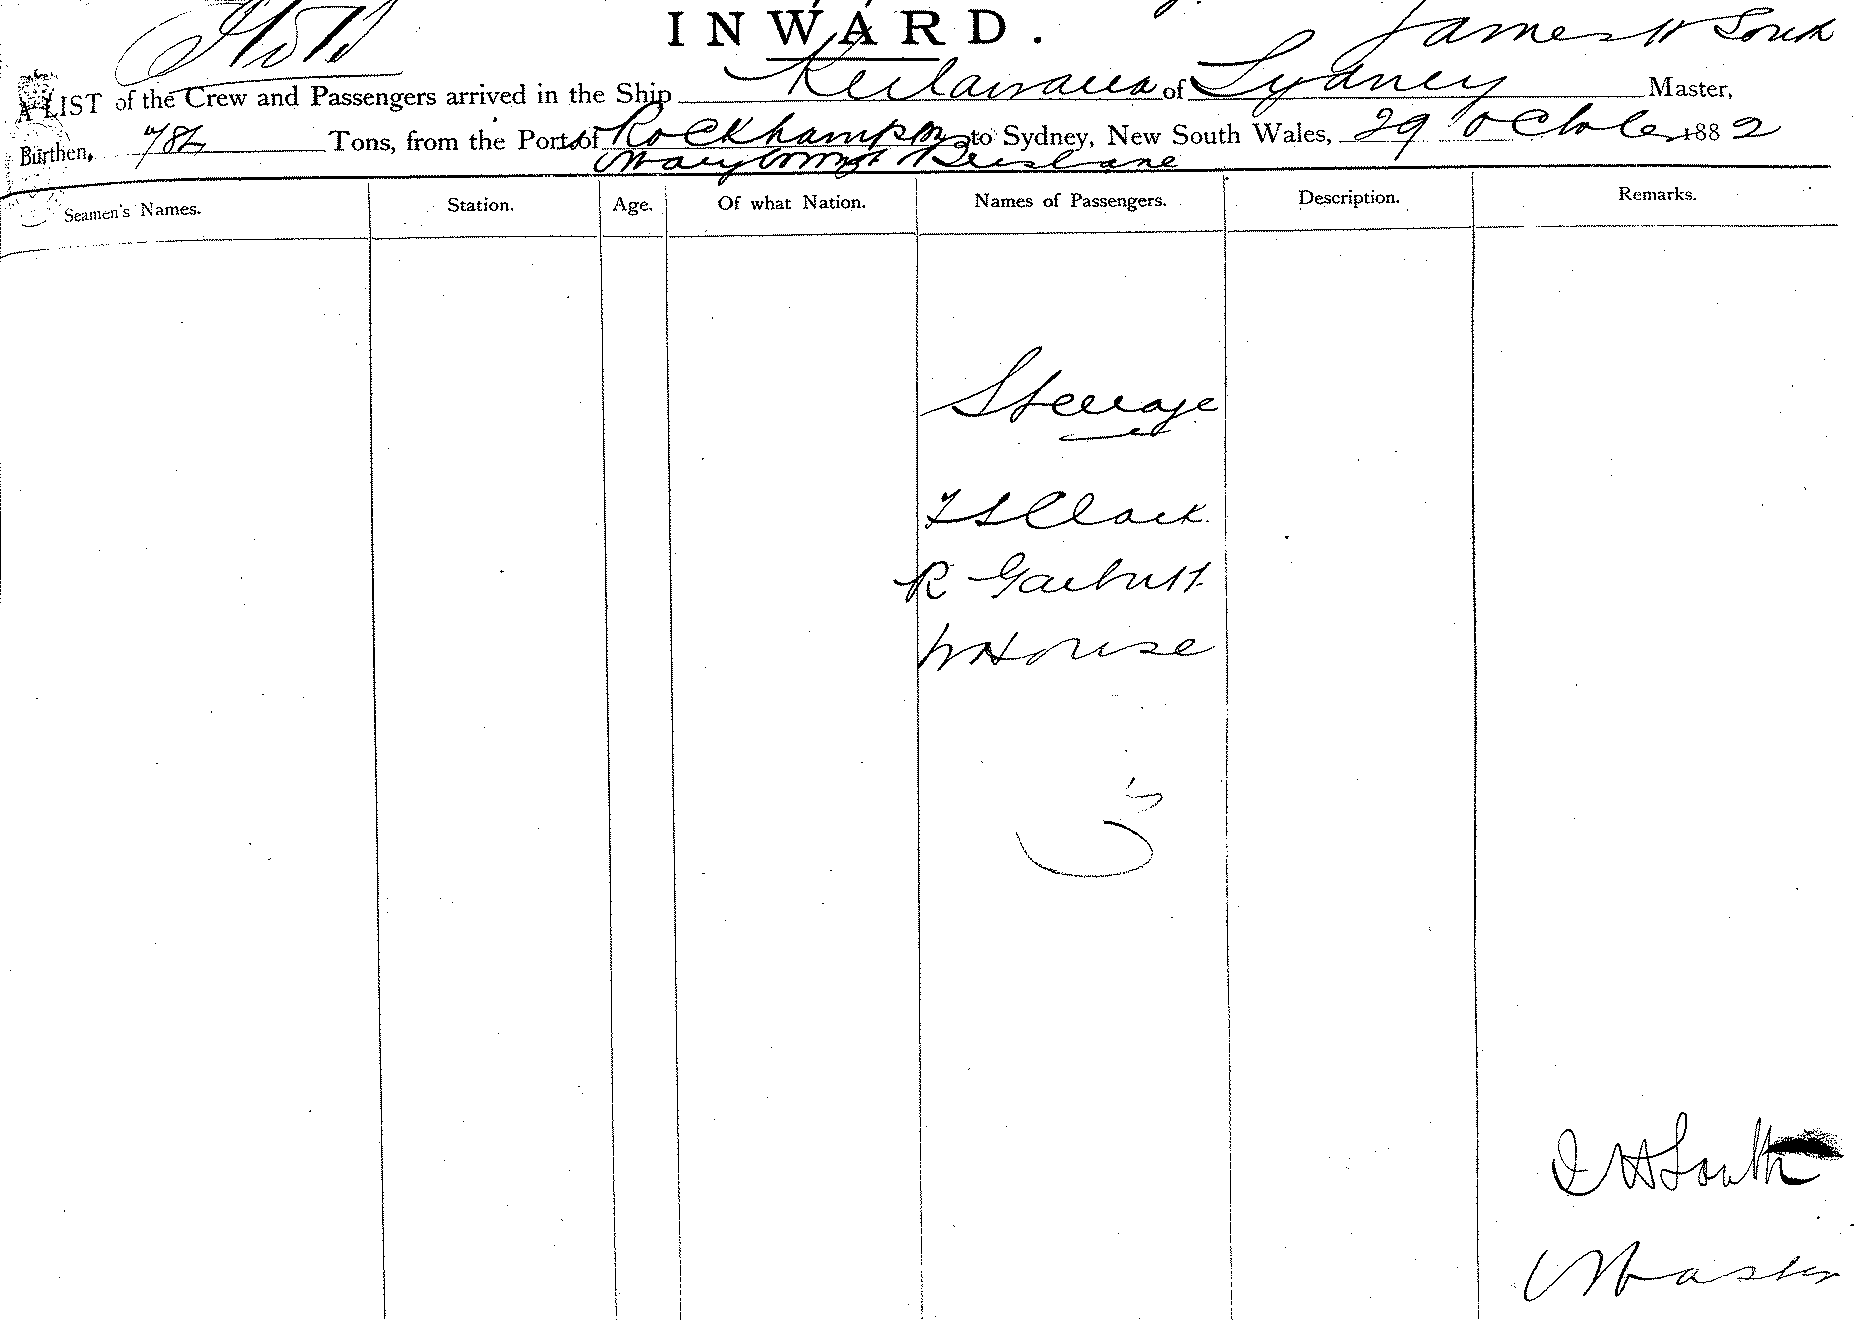 INWARD.
James H South
A LIST of the Crew and Passengers arrived in the Ship Keilawarra of Sydney Master,
Burthen, 784 Tons, from the Port of Rockhampton to Sydney, New South Wales, 29 October 1882
Maryborough Brisbane
Seamen's Names. Station. Age. Of what Nation. Names of Passengers. Description. Remarks.
Steerage
Clark
R Garbutt
W House
J H South
Master